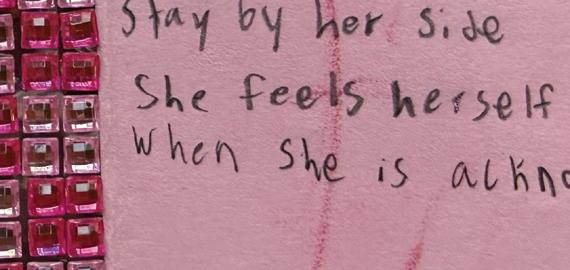 Stay by her side
She feels herself
When she is ackno